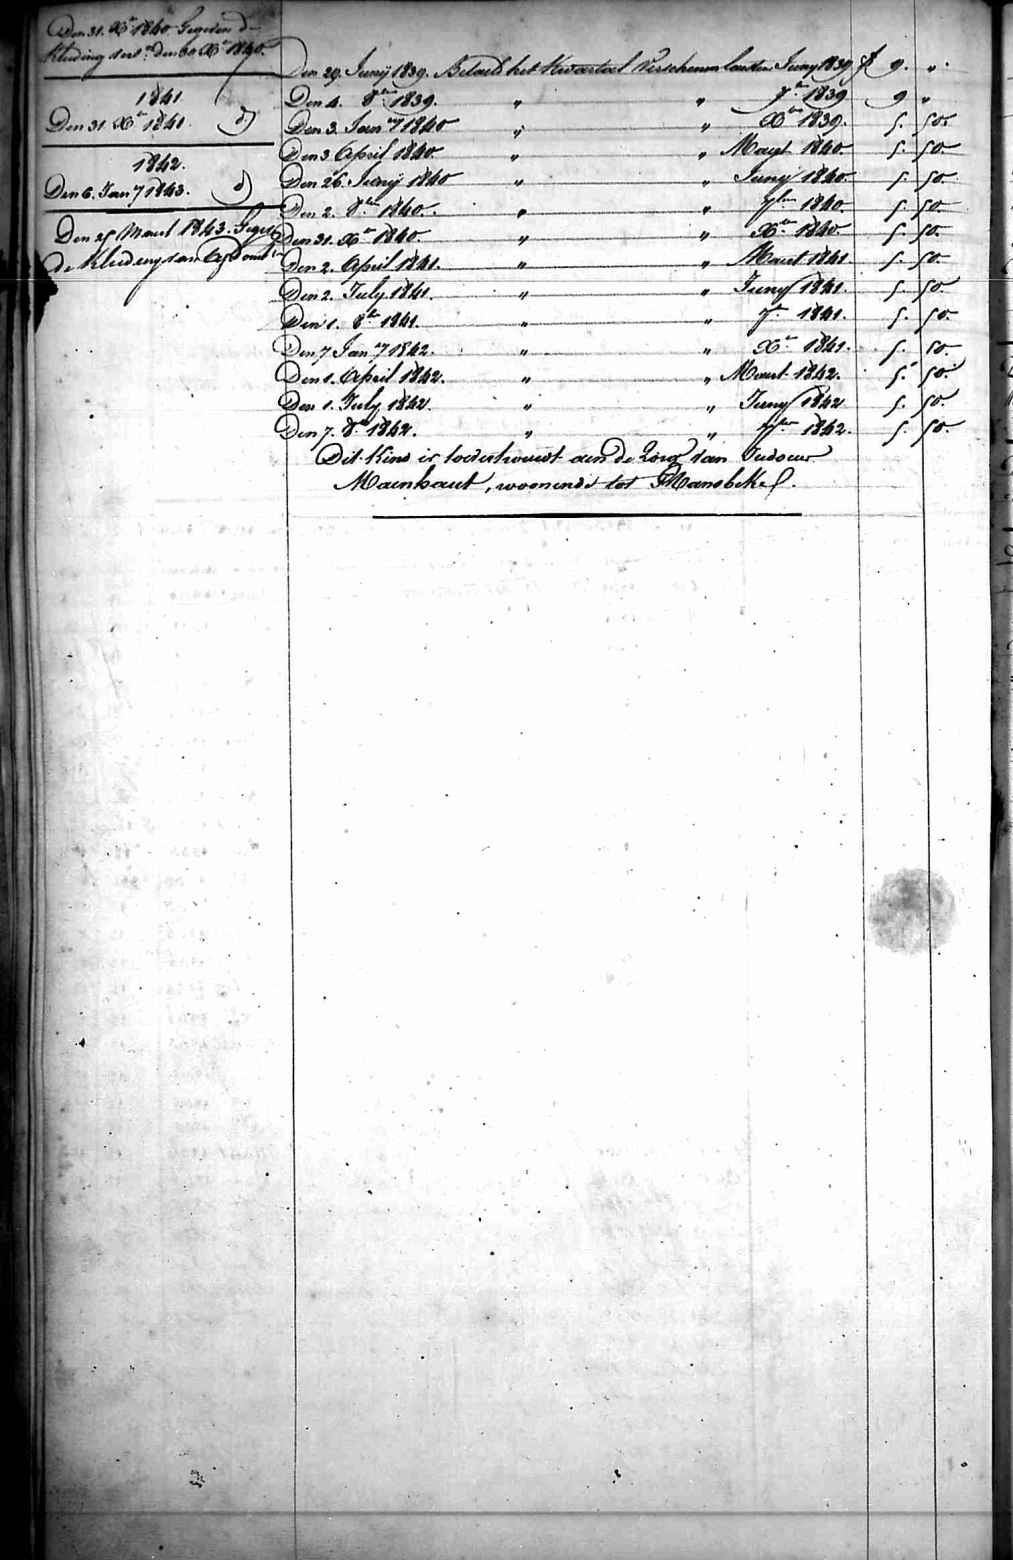 Den 31. Xr 1840 Gegeven de
kleding
1841
Den 31 Xr 1841. do
1842.
Den 6. Jany 1843. do
Den 25 Maert 1843. Gegeven
de kleding van
Den 29. Junij 1839. Betaeld het Kwartael Verschenen Junij 1839 f 9. "
Den 4. 8ber 1839. " " 7ber 1839 9 "
Den 3. Jany 1840 " " Xber 1839. 5. 50.
Den 3 April 1840 " " Maert 1840. 5. 50
Den 26. Junij 1840 " " Junij 1840 5 50.
Den 2. 8ber 1840. " " 7ber 1840. 5 50.
Den 31. Xr 1840. " " Xr 1840 5 50.
Den 2. April 1841. " " Maert 1841 5. 50.
Den 2. July 1841. " " Juny 1841. 5 50.
Den 1. 8br 1841. " " 7r 1841. 5. 50
Den 7. Jany 1842. " " Xr 1841. 5. 50.
Den 1. April 1842. " " Maert 1842. 5. 50.
Den 1. July 1842. " " Juny 1842 5. 50.
Den 7. 8br 1842. " " 7ber 1842. 5. 50.
Dit Kind is toevertrouwt aen de Zorg van Judocus
Maenhaut, woonende tot